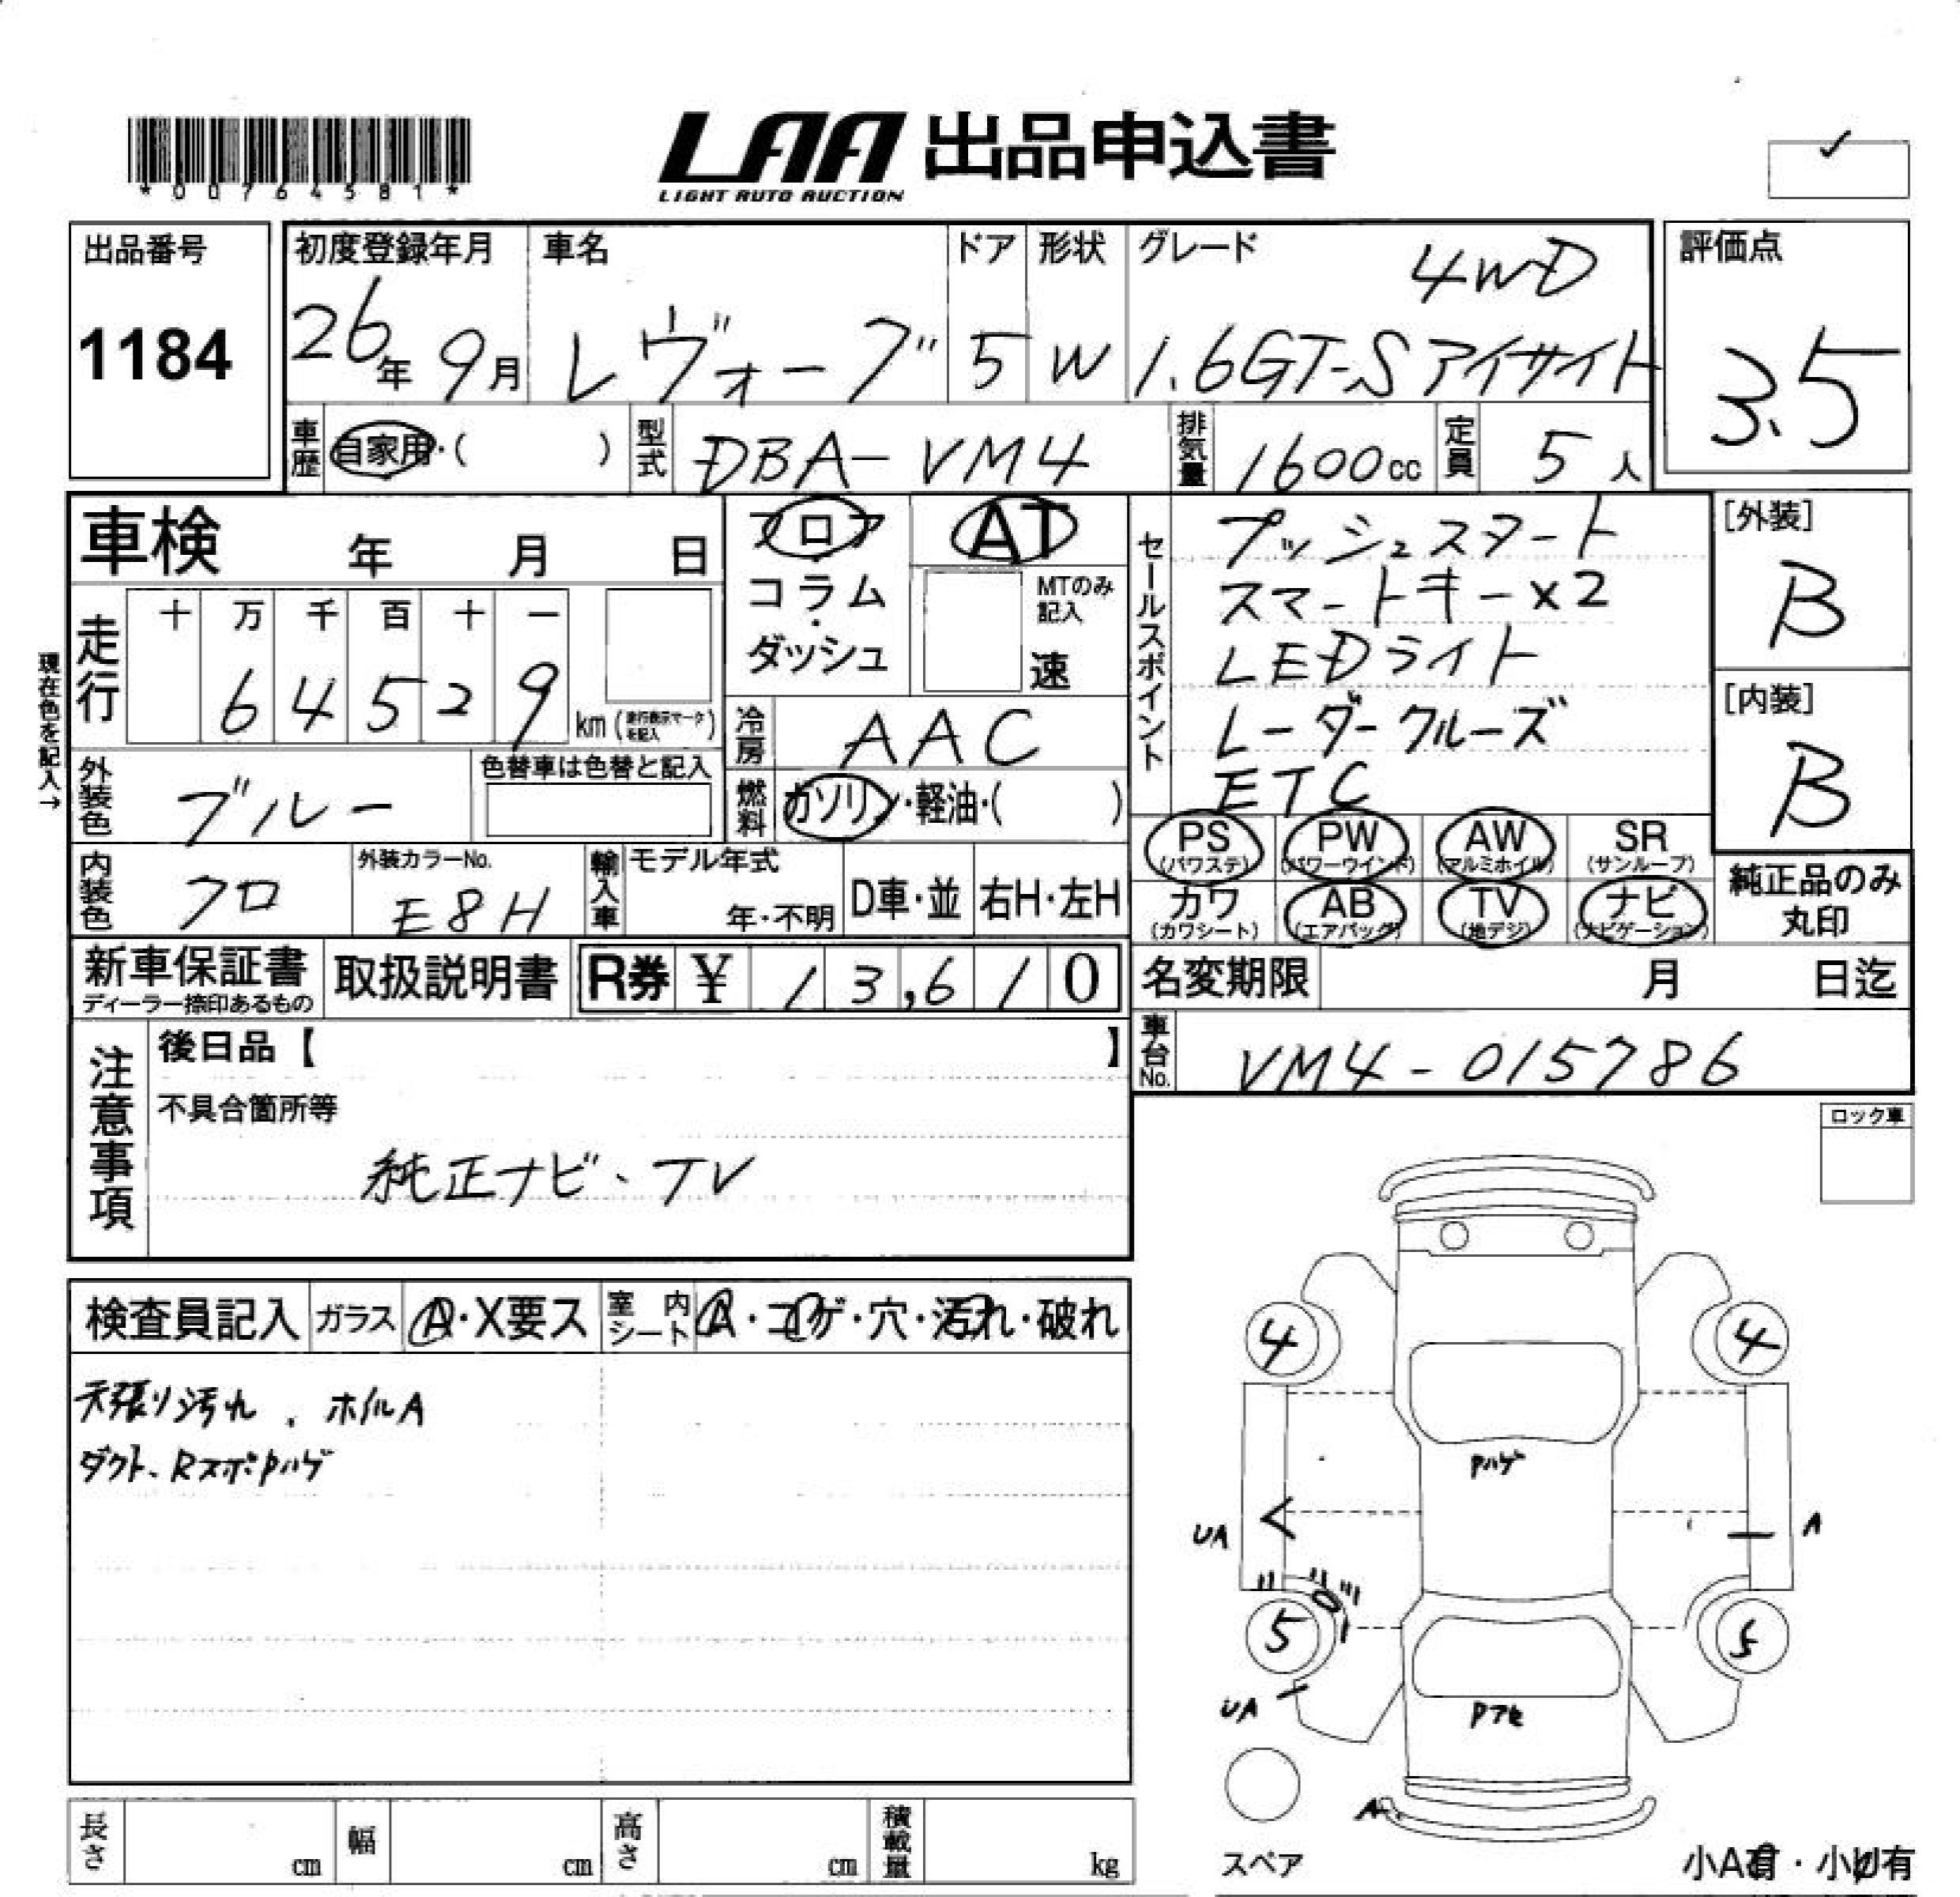 *00764581*
LAA 出品申込書
LIGHT AUTO AUCTION
出品番号
1184
初度登録年月
26年 9月
車名
レヴォーグ
ドア
5
形状
W
グレード
4WD
1.6GT-Sアイサイト
評価点
3.5
車歴 自家用・( )
型式 DBA-VM4
排気量 1600cc
定員 5人
車検 年 月 日
フロア・コラム・ダッシュ
AT
MTのみ記入
速
セールスポイント
プッシュスタート
スマートキー×2
LEDライト
レーダークルーズ
ETC
[外装]
B
[内装]
B
現在色を記入→
走行
十 万 千 百 十 一
6 4 5 2 9 km (走行表示マークを記入)
冷房 AAC
外装色 ブルー
色替車は色替と記入
燃料 ガソリン・軽油・( )
PS (パワステ)
PW (パワーウインド)
AW (アルミホイル)
SR (サンルーフ)
カワ (カワシート)
AB (エアバッグ)
TV (地デジ)
ナビ (ナビゲーション)
純正品のみ丸印
内装色 クロ
外装カラーNo.
E8H
輸入車
モデル年式
年・不明
D車・並
右H・左H
新車保証書
ディーラー捺印あるもの
取扱説明書
R券 ¥ 13,610
名変期限 月 日迄
車台No. VM4-015786
注意事項
後日品【 】
不具合箇所等
純正ナビ、TV
ロック車
検査員記入
ガラス A・X要ス
室内シート A・コゲ・穴・汚れ・破れ
天張り汚れ、ホイルA
ダクト、RスポPハゲ
4 4
Pハゲ
UA A
5 5
UA
Pアセ
A
スペア
小A有・小U有
長さ cm
幅 cm
高さ cm
積載量 kg